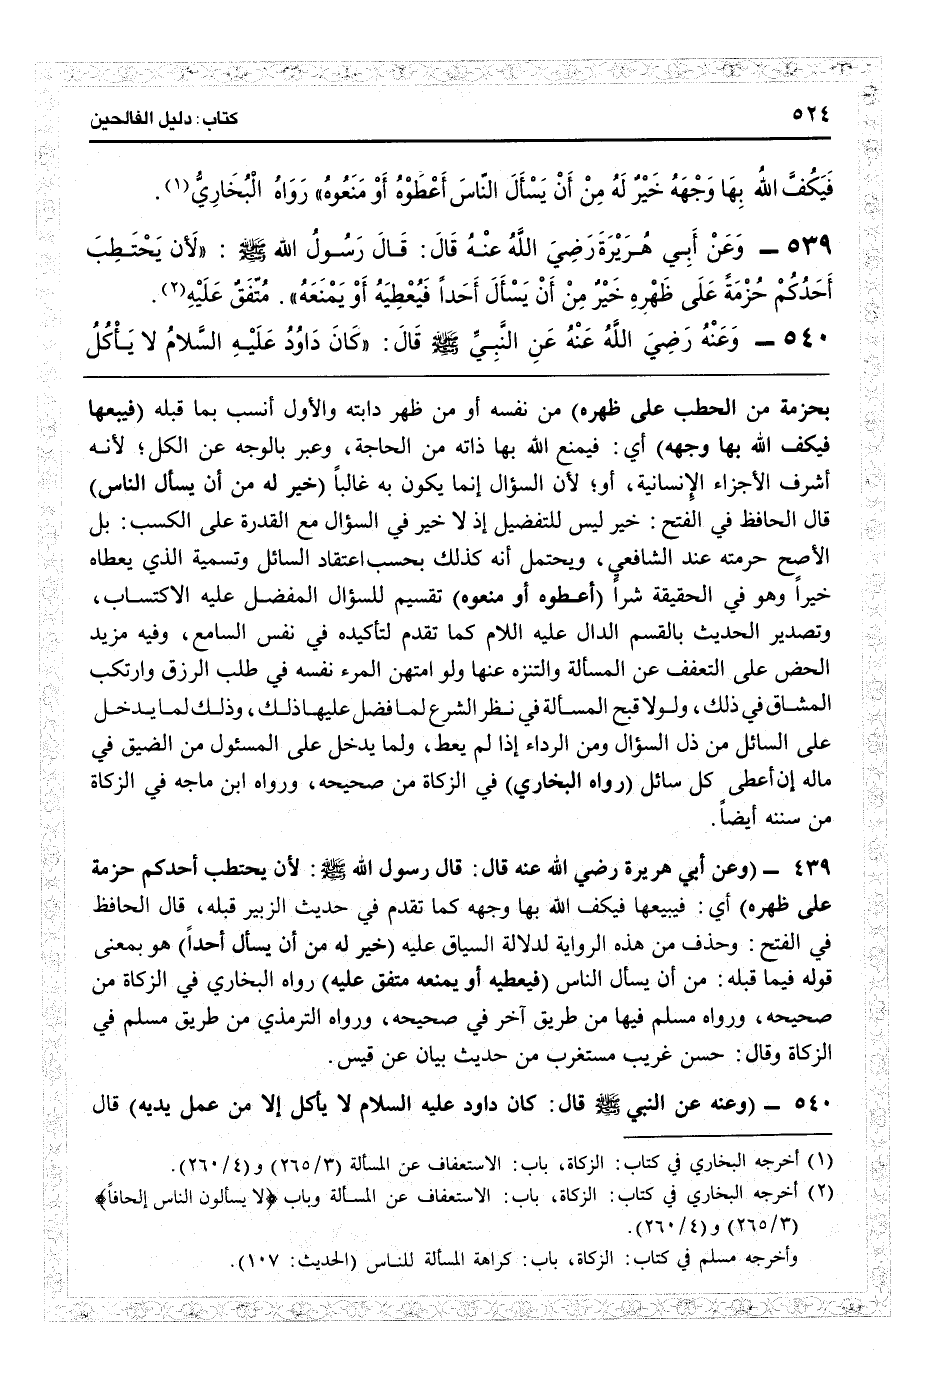 ٥٢٤
كتاب: دليل الفالحين
فَيَكُفَّ اللهُ بِهَا وَجْهَهُ خَيْرٌ لَهُ مِنْ أَنْ يَسْأَلَ النَّاسَ أَعْطَوْهُ أَوْ مَنَعُوهُ» رَوَاهُ الْبُخَارِيُّ(١).
٥٣٩ ــ وَعَنْ أَبِي هُرَيْرَةَ رَضِيَ اللَّهُ عنْهُ قَالَ: قَالَ رَسُولُ الله ﷺ : «لَأن يَحْتَطِبَ
أَحَدُكُمْ حُزْمَةً عَلَى ظَهْرِهِ خَيْرٌ مِنْ أَنْ يَسْأَلَ أَحَداً فَيُعْطِيَهُ أَوْ يَمْنَعَهُ». مُتَّفَقٌ عَلَيْهِ(٢).
٥٤٠ ــ وَعَنْهُ رَضِيَ اللَّهُ عَنْهُ عَنِ النَّبِيِّ ﷺ قَالَ: «كَانَ دَاوُدُ عَلَيْهِ السَّلامُ لا يَأْكُلُ
بحزمة من الحطب على ظهره) من نفسه أو من ظهر دابته والأول أنسب بما قبله (فيبيعها
فيكف الله بها وجهه) أي: فيمنع الله بها ذاته من الحاجة، وعبر بالوجه عن الكل؛ لأنه
أشرف الأجزاء الإنسانية، أو؛ لأن السؤال إنما يكون به غالباً (خير له من أن يسأل الناس)
قال الحافظ في الفتح: خير ليس للتفضيل إذ لا خير في السؤال مع القدرة على الكسب: بل
الأصح حرمته عند الشافعي، ويحتمل أنه كذلك بحسب اعتقاد السائل وتسمية الذي يعطاه
خيراً وهو في الحقيقة شراً (أعطوه أو منعوه) تقسيم للسؤال المفضل عليه الاكتساب،
وتصدير الحديث بالقسم الدال عليه اللام كما تقدم لتأكيده في نفس السامع، وفيه مزيد
الحض على التعفف عن المسألة والتنزه عنها ولو امتهن المرء نفسه في طلب الرزق وارتكب
المشاق في ذلك، ولولا قبح المسألة في نظر الشرع لما فضل عليها ذلك، وذلك لما يدخل
على السائل من ذل السؤال ومن الرداء إذا لم يعط، ولما يدخل على المسئول من الضيق في
ماله إن أعطى كل سائل (رواه البخاري) في الزكاة من صحيحه، ورواه ابن ماجه في الزكاة
من سننه أيضاً.
٤٣٩ ــ (وعن أبي هريرة رضي الله عنه قال: قال رسول الله ﷺ: لأن يحتطب أحدكم حزمة
على ظهره) أي: فيبيعها فيكف الله بها وجهه كما تقدم في حديث الزبير قبله، قال الحافظ
في الفتح: وحذف من هذه الرواية لدلالة السياق عليه (خير له من أن يسأل أحداً) هو بمعنى
قوله فيما قبله: من أن يسأل الناس (فيعطيه أو يمنعه متفق عليه) رواه البخاري في الزكاة من
صحيحه، ورواه مسلم فيها من طريق آخر في صحيحه، ورواه الترمذي من طريق مسلم في
الزكاة وقال: حسن غريب مستغرب من حديث بيان عن قيس.
٥٤٠ ــ (وعنه عن النبي ﷺ قال: كان داود عليه السلام لا يأكل إلا من عمل يديه) قال
(١) أخرجه البخاري في كتاب: الزكاة، باب: الاستعفاف عن المسألة (٢٦٥/٣) و(٢٦٠/٤).
(٢) أخرجه البخاري في كتاب: الزكاة، باب: الاستعفاف عن المسألة وباب ﴿لا يسألون الناس إلحافاً﴾
(٢٦٥/٣) و(٢٦٠/٤).
وأخرجه مسلم في كتاب: الزكاة، باب: كراهة المسألة للناس (الحديث: ١٠٧).